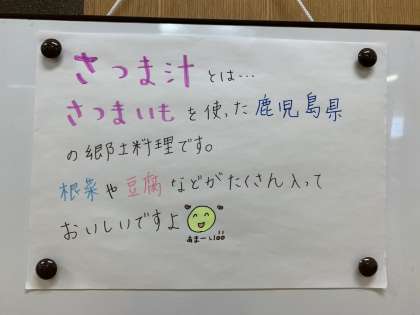 さつま汁とは…
さつまいもを使った鹿児島県
の郷土料理です。
根菜や豆腐などがたくさん入って
おいしいですよ
あまーい!!